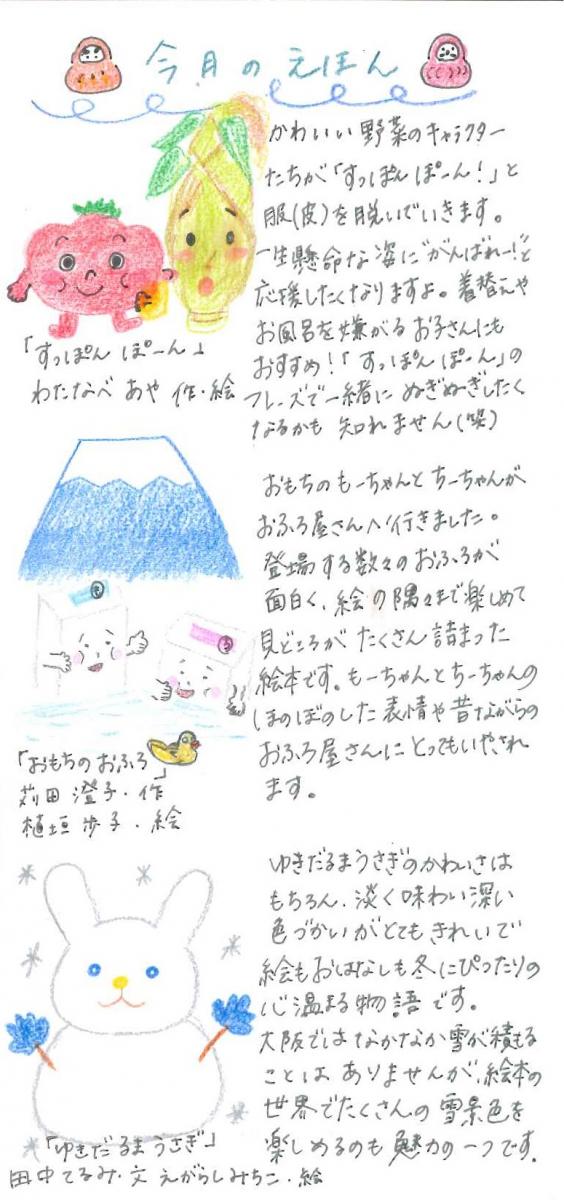 今月のえほん
かわいい野菜のキャラクター
たちが「すっぽんぽーん!」と
服(皮)を脱いでいきます。
一生懸命な姿に"がんばれー!"と
応援したくなりますよ。着替えや
お風呂を嫌がるお子さんにも
おすすめ!「すっぽんぽーん」の
フレーズで一緒にぬぎぬぎしたく
なるかも知れません(笑)
「すっぽんぽーん」
わたなべ あや 作・絵
おもちのもーちゃんとちーちゃんが
おふろ屋さんへ行きました。
登場する数々のおふろが
面白く、絵の隅々まで楽しめて
見どころがたくさん詰まった
絵本です。もーちゃんとちーちゃんの
ほのぼのした表情や昔ながらの
おふろ屋さんにとってもいやされ
ます。
「おもちのおふろ」
苅田 澄子・作
植垣 歩子・絵
ゆきだるまうさぎのかわいさは
もちろん、淡く味わい深い
色づかいがとてもきれいで
絵もおはなしも冬にぴったりの
心温まる物語です。
大阪ではなかなか雪が積もる
ことはありませんが、絵本の
世界でたくさんの雪景色を
楽しめるのも魅力の一つです。
「ゆきだるまうさぎ」
田中てるみ・文 えがらしみちこ・絵